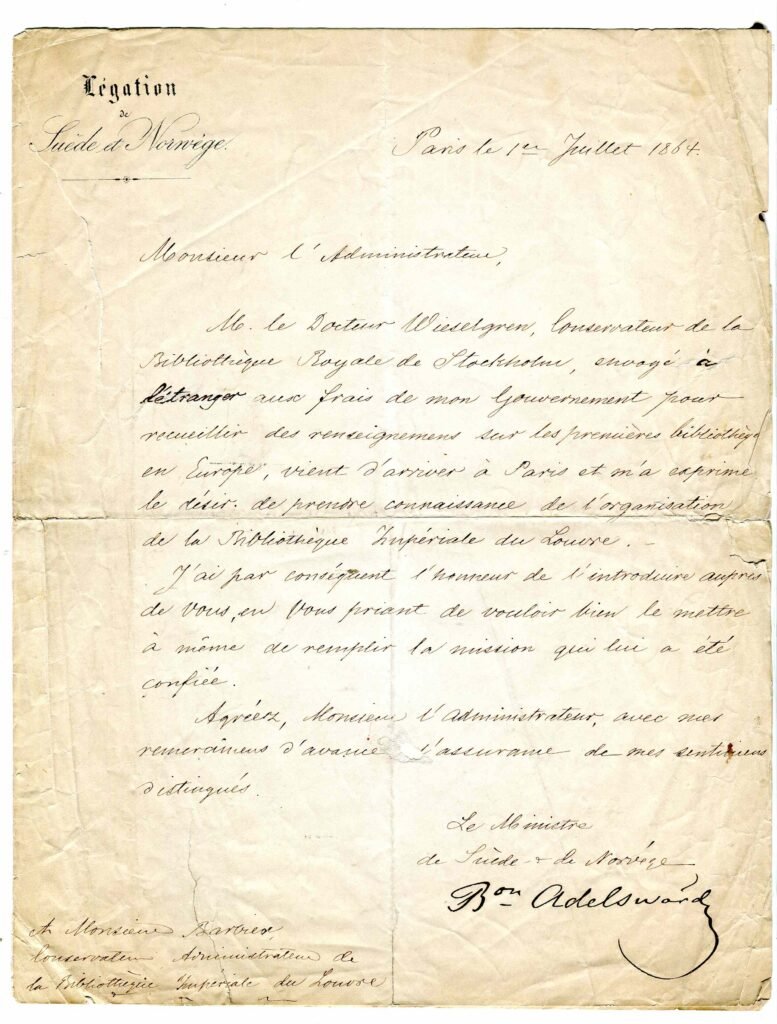 Légation
de
Suède et Norwège.
Paris le 1er Juillet 1864.
Monsieur l'Administrateur,
M. le Docteur Wieselgren, Conservateur de la
Bibliothèque Royale de Stockholm, envoyé à
l'étranger aux frais de mon Gouvernement pour
recueillir des renseignemens sur les premières bibliothèq
en Europe, vient d'arriver à Paris et m'a exprimé
le désir de prendre connaissance de l'organisation
de la Bibliothèque Impériale du Louvre. _
J'ai par conséquent l'honneur de l'introduire auprès
de Vous, en Vous priant de vouloir bien le mettre
à même de remplir la mission qui lui a été
confiée.
Agréez, Monsieur l'administrateur, avec mes
remercimens d'avance l'assurance de mes sentimens
distingués.
Le Ministre
de Suède & de Norvège
Bon Adelswärd
A Monsieur Barbier,
Conservateur Administrateur de
la Bibliothèque Impériale du Louvre